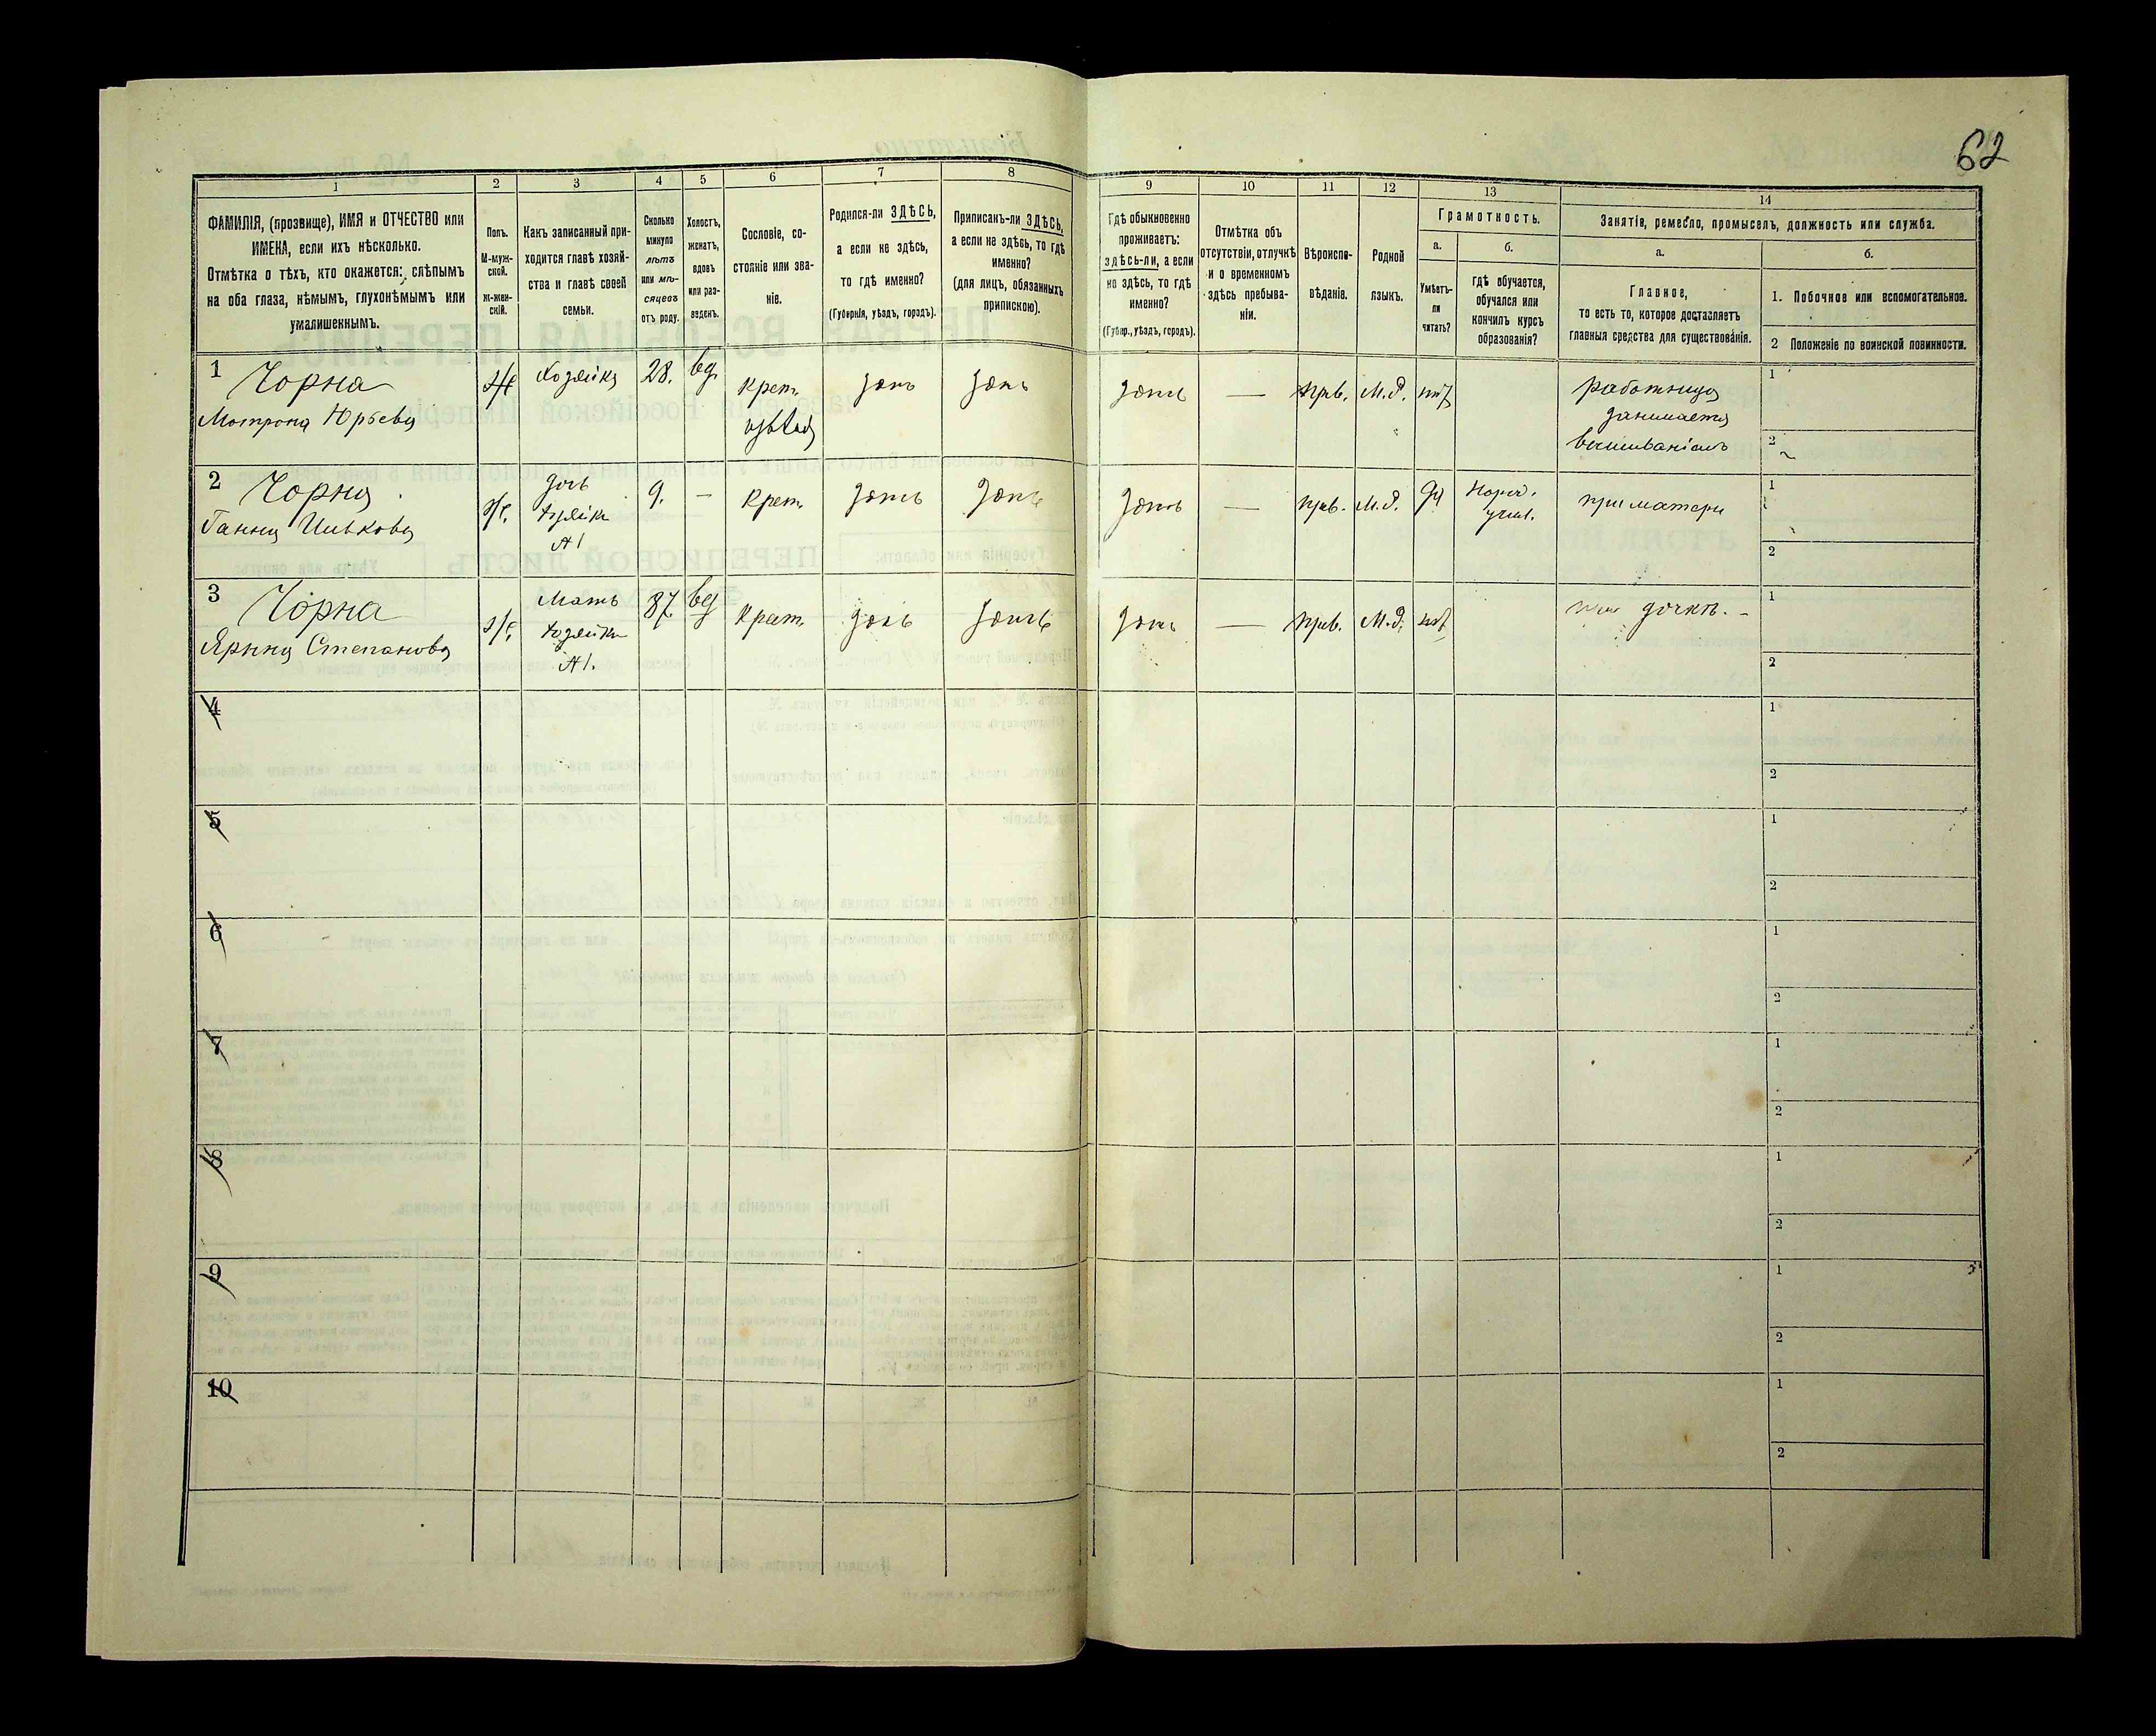 62
1
2
3
4
5
6
7
8
9
10
11
12
13
14
ФАМИЛІЯ, (прозвище), ИМЯ и ОТЧЕСТВО или
ИМЕНА, если ихъ нѣсколько.
Отмѣтка о тѣхъ, кто окажется: слѣпымъ
на оба глаза, нѣмымъ, глухонѣмымъ или
умалишеннымъ.
Полъ.
М-муж-
ской.
ж-жен-
скій.
Какъ записанный при-
ходится главѣ хозяй-
ства и главѣ своей
семьи.
Сколько
минуло
лѣтъ
или мѣ-
сяцевъ
отъ роду.
Холостъ,
женатъ,
вдовъ
или раз-
веденъ.
Сословіе, со-
стояніе или зва-
ніе.
Родился-ли ЗДѢСЬ,
а если не здѣсь,
то гдѣ именно?
(Губернія, уѣздъ, городъ).
Приписанъ-ли ЗДѢСЬ,
а если не здѣсь, то гдѣ
именно?
(для лицъ, обязанныхъ
припискою).
Гдѣ обыкновенно
проживаетъ:
здѣсь-ли, а если
не здѣсь, то гдѣ
именно?
(Губер., уѣздъ, городъ).
Отмѣтка объ
отсутствіи, отлучкѣ
и о временномъ
здѣсь пребыва-
ніи.
Вѣроиспо-
вѣданіе.
Родной
языкъ.
Грамотность.
а.
Умѣетъ-
ли
читать?
б.
гдѣ обучается,
обучался или
кончилъ курсъ
образованія?
Занятіе, ремесло, промыселъ, должность или служба.
а.
Главное,
то есть то, которое доставляетъ
главныя средства для существованія.
б.
1. Побочное или вспомогательное.
2 Положеніе по воинской повинности.
1 Чорна
Мотрона Юрьева
Хозяйка
28.
вд.
Крет.
Прв.
М.Р.
нѣт
работница
занимается
вышиваніемъ
1
2
2 Чорна
Ганна
дочь
хозяйки
№1
9.
—
Крет.
прв.
М.Р.
да
Народ.
учил.
при матери
1
2
3 Чорна
Ярына Степанова
Мать
хозяйки
№1.
87
вд
Крет.
Прв.
М.Р.
нѣт
при дочкѣ. -
1
2
4
1
2
5
1
2
6
1
2
7
1
2
8
1
2
9
1
2
10
1
2